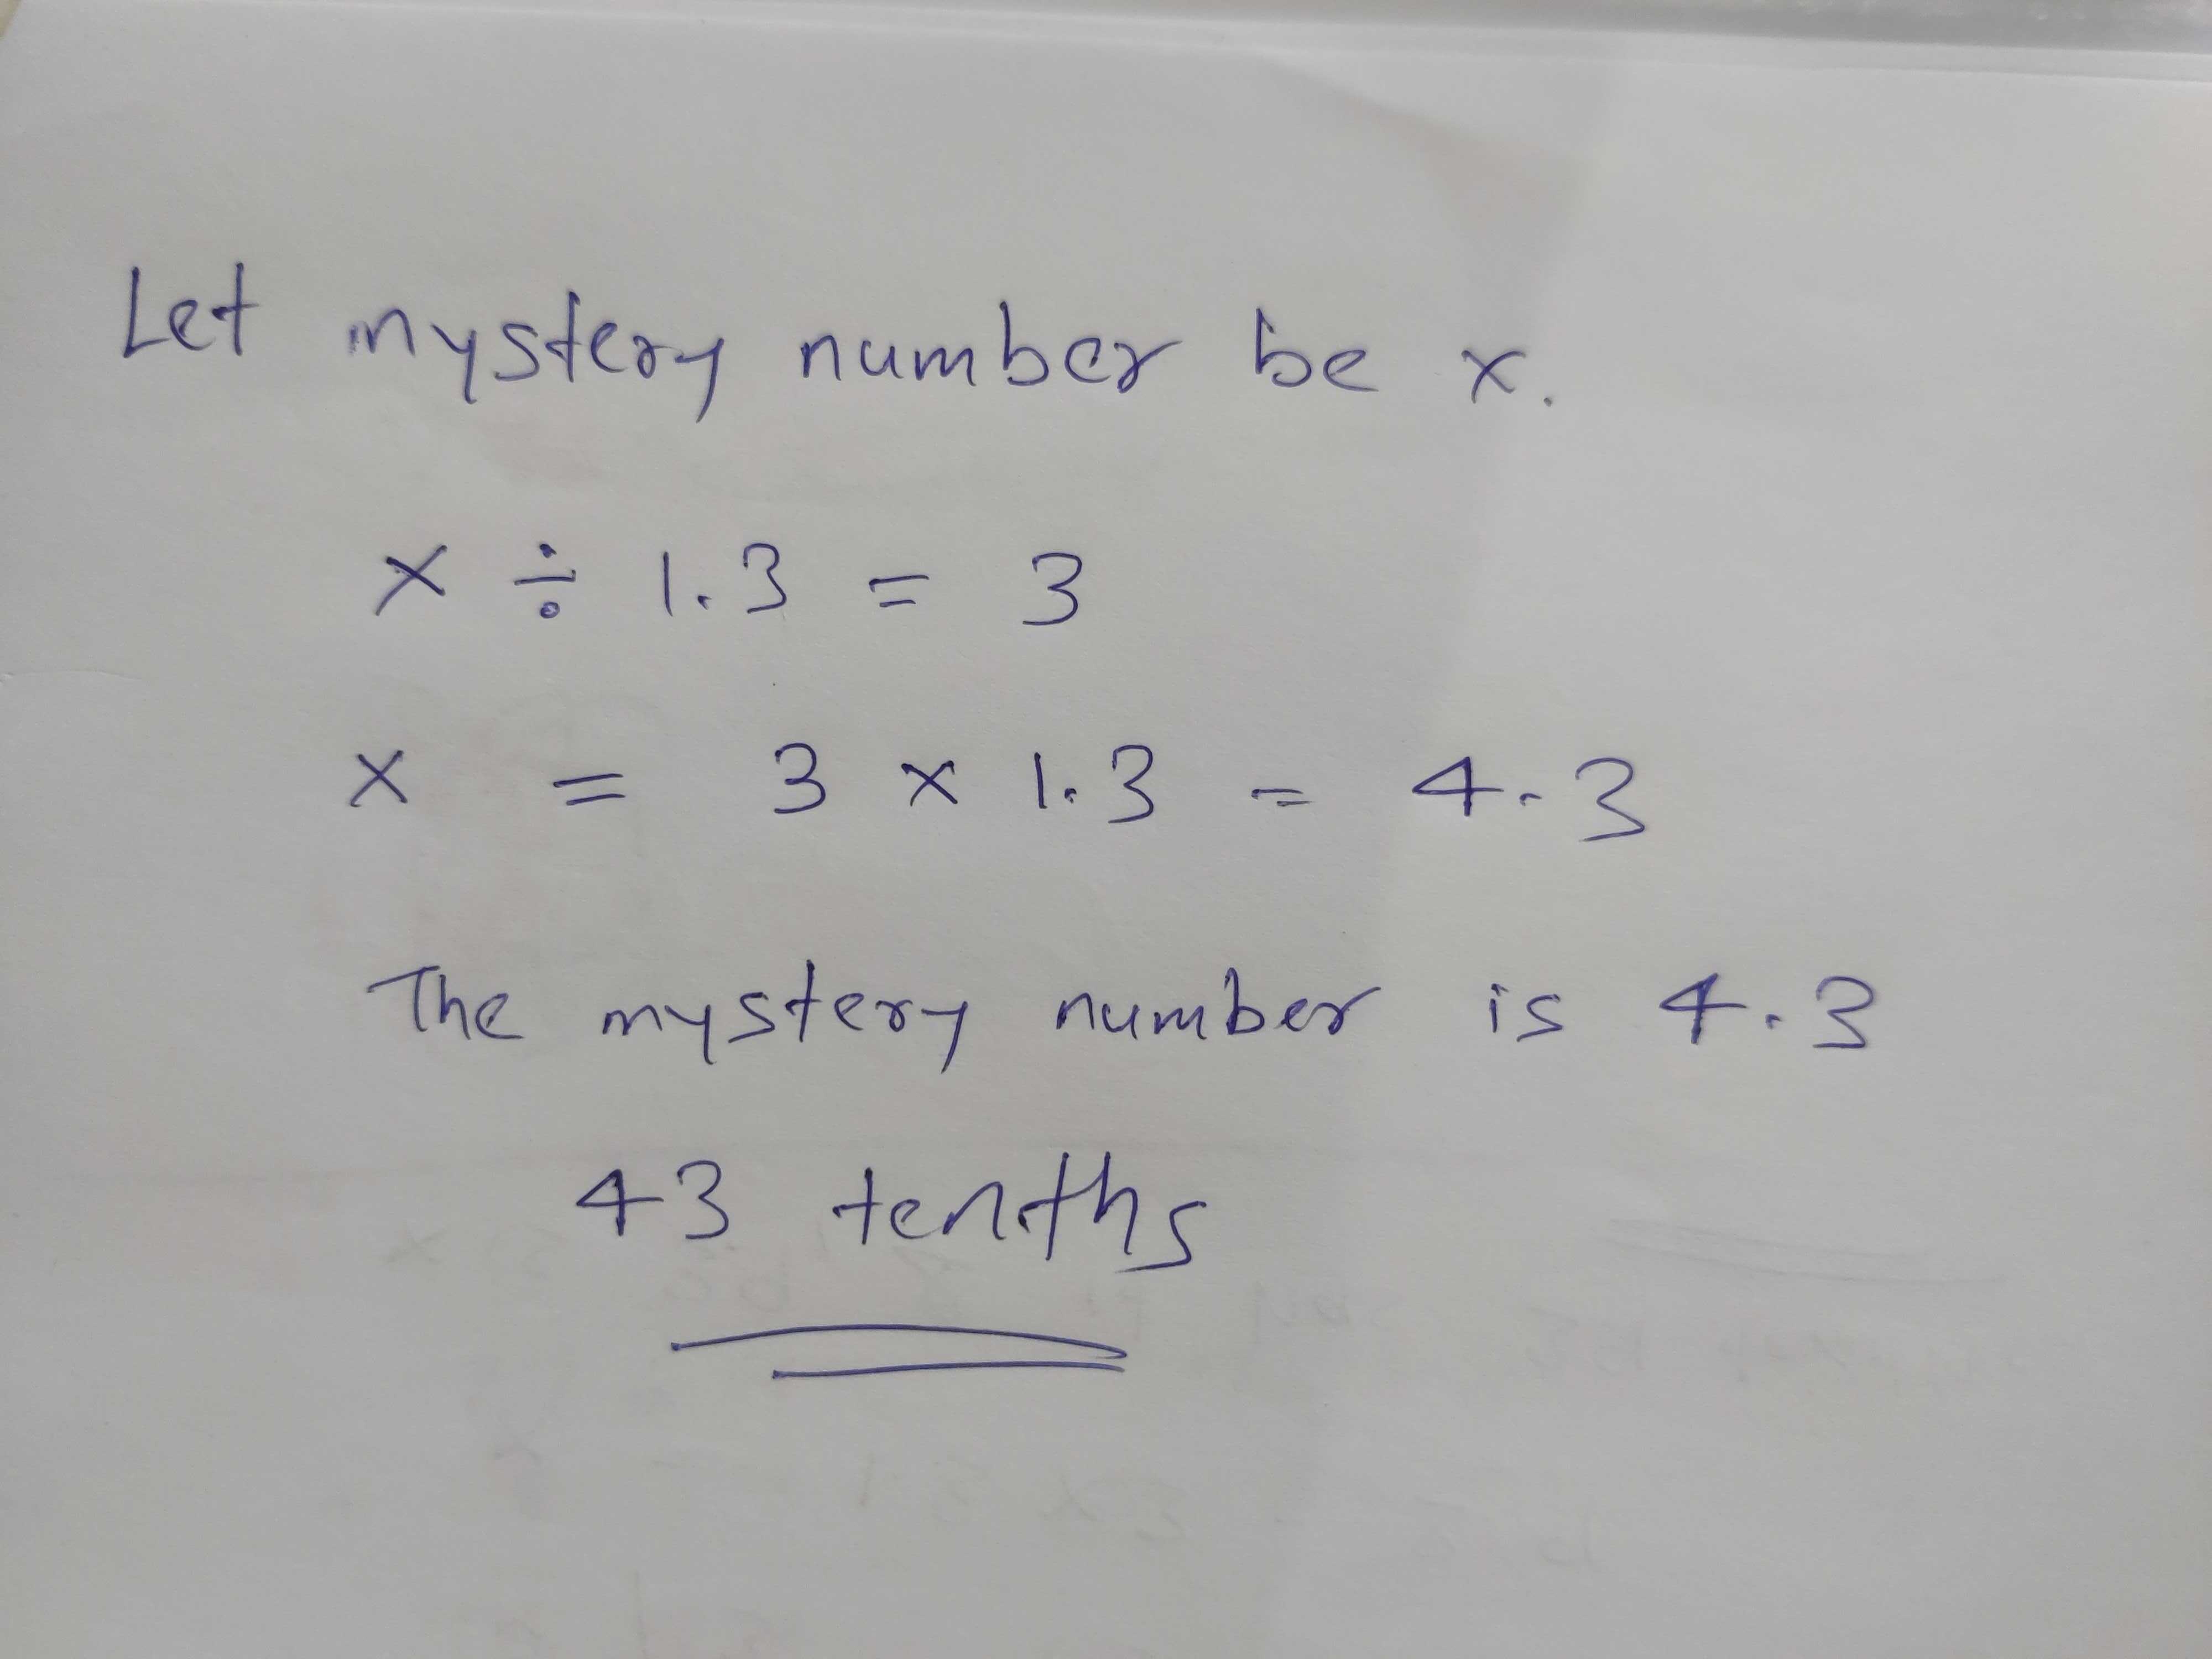 Let mystery number be x.
x ÷ 1.3 = 3
x = 3 x 1.3 = 4.3
The mystery number is 4.3
43 tenths